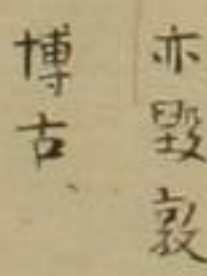 亦毀敦
博古